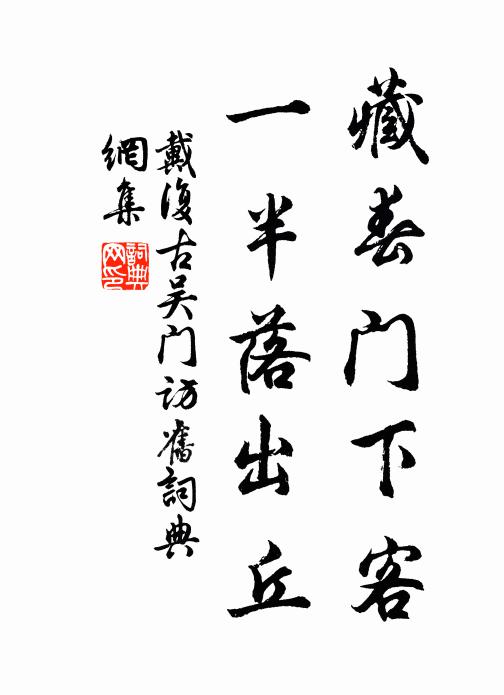 藏春门下客
一半落出丘
戴復古吴门访舊詞典
網集
詞典网印